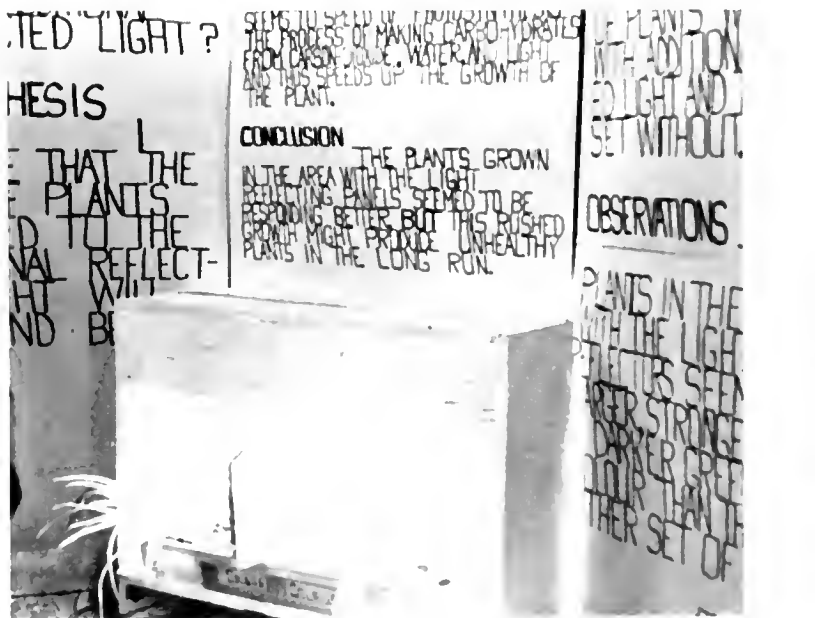 TED LIGHT?
HESIS
THAT THE
PLANTS
D TO THE
NAL REFLECT-
HT WILL
ND BE
SEEMS TO SPEED UP PHOTOSYNTHESIS
THE PROCESS OF MAKING CARBOHYDRATES
FROM CARBON DIOXIDE, WATER, AND LIGHT
AND THUS SPEEDS UP THE GROWTH OF
THE PLANT.
CONCLUSION
THE PLANTS GROWN
IN THE AREA WITH THE LIGHT
REFLECTING PANELS SEEMED TO BE
RESPONDING BETTER, BUT THIS RUSHED
GROWTH MIGHT PRODUCE UNHEALTHY
PLANTS IN THE LONG RUN.
OF PLANTS
WITH ADDITION
ED LIGHT AND
SET WITHOUT.
OBSERVATIONS.
PLANTS IN THE
WITH THE LIGHT
REFLECTORS SEEM
ARGER, STRONGE
DARKER GREE
OLOUR THAN TH
THER SET OF